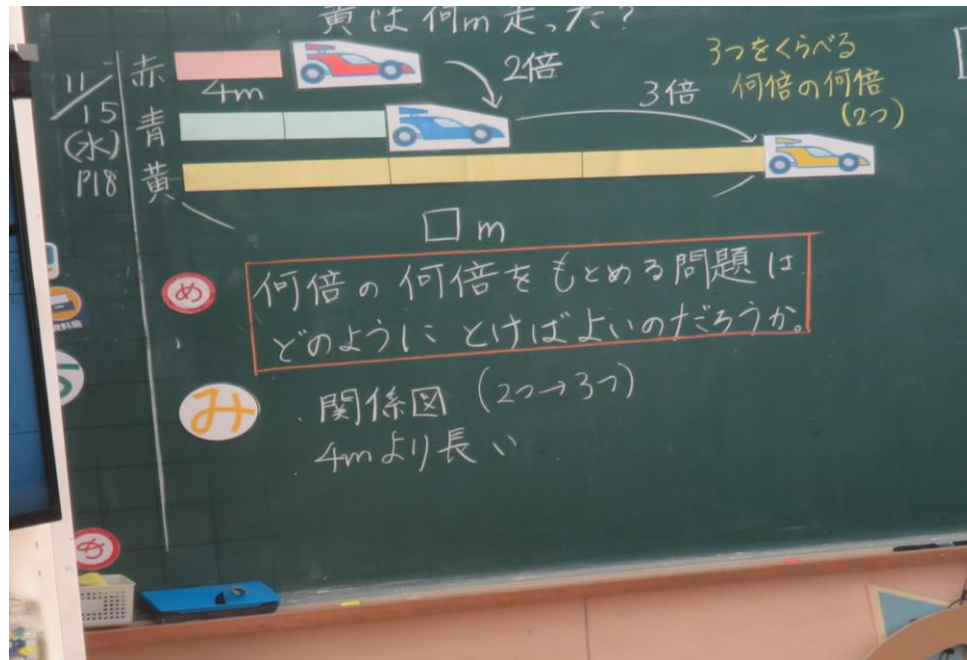 黄は何m走った?
11/15
(水)
P18
赤
4m
2倍
青
3倍
黄
3つをくらべる
何倍の何倍
(2つ)
□m
め
何倍の何倍をもとめる問題は
どのように とけばよいのだろうか。
み
・関係図 (2つ→3つ)
4mより長い